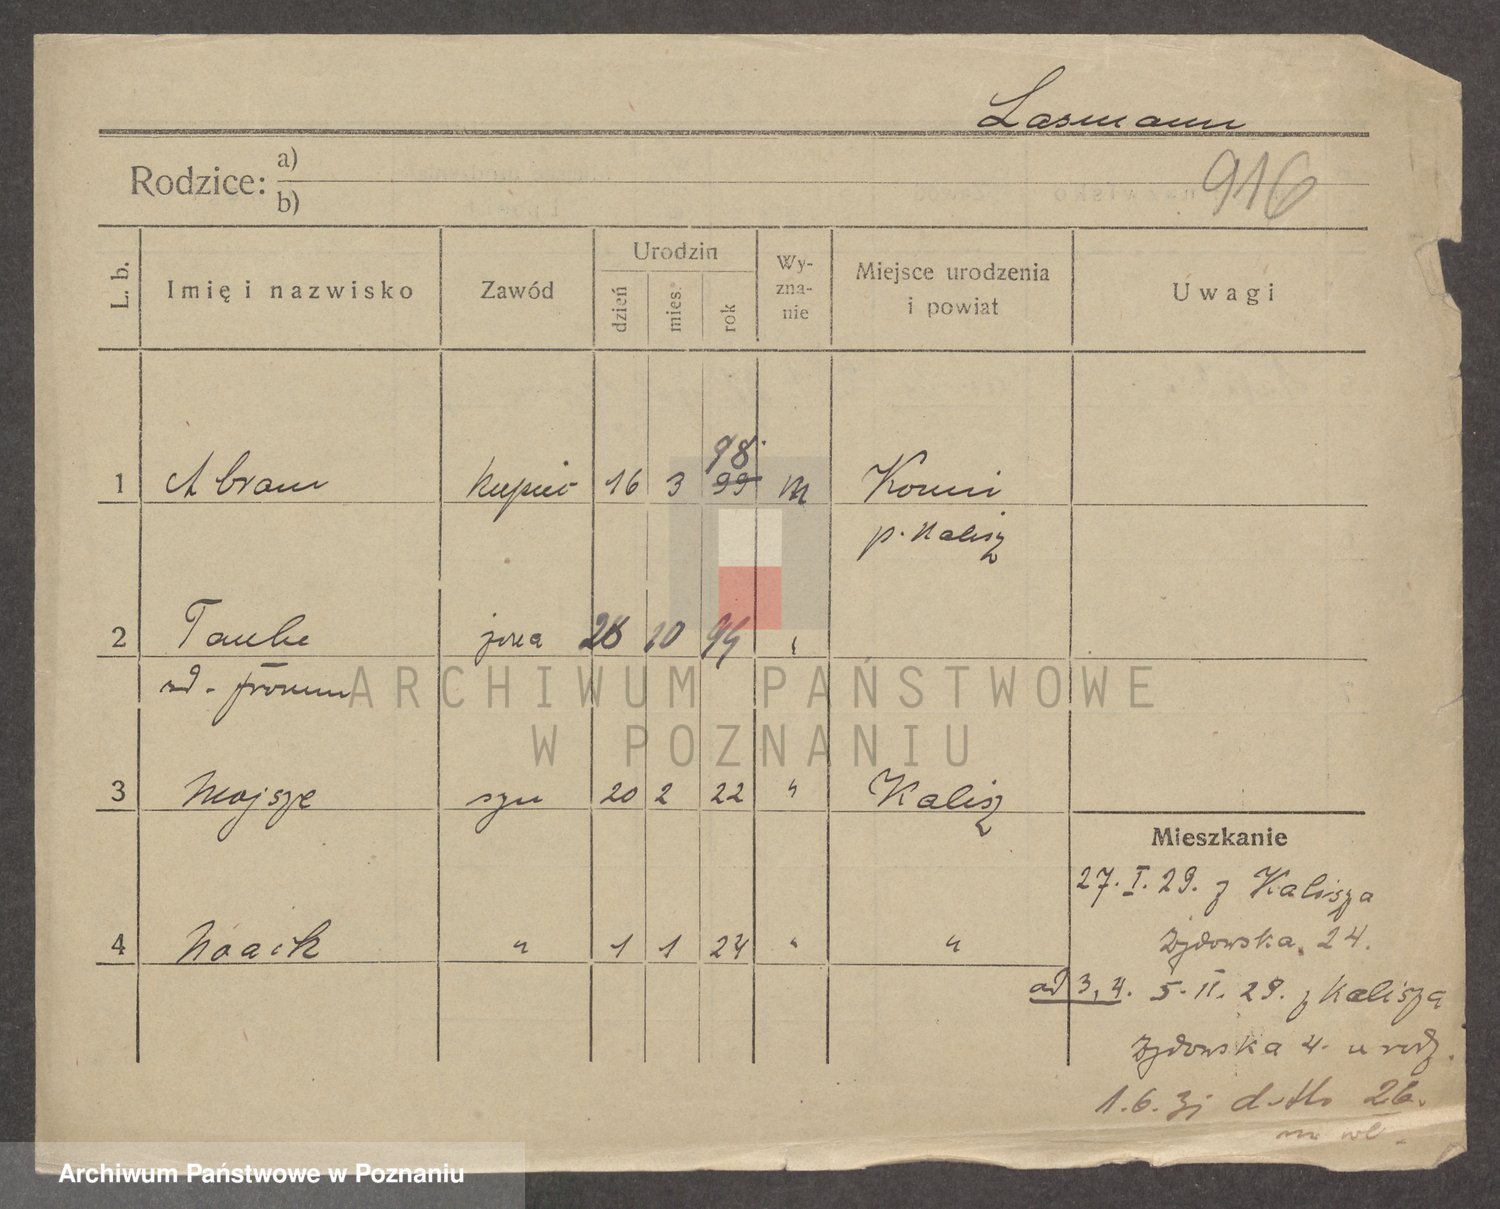 Lasmann
916
Rodzice: a)
b)
L. b. Imię i nazwisko Zawód Urodzin dzień mies. rok Wy-zna-nie Miejsce urodzenia i powiat Uwagi
98
1 Abram kupiec 16 3 99 m Konin
p. Kalisz
2 Taube żona 28 10 94 "
Mojsze
3 syn 20 2 22 " Kalisz
Mieszkanie
27. I. 29. z Kalisza
4 " 1 1 24 " "
Żydowska 24.
ad 3, 4. 5. II. 29. z Kalisza
Żydowska 4. u rodz.
1.6.31 dtto 26.
ARCHIWUM PAŃSTWOWE
W POZNANIU
Archiwum Państwowe w Poznaniu